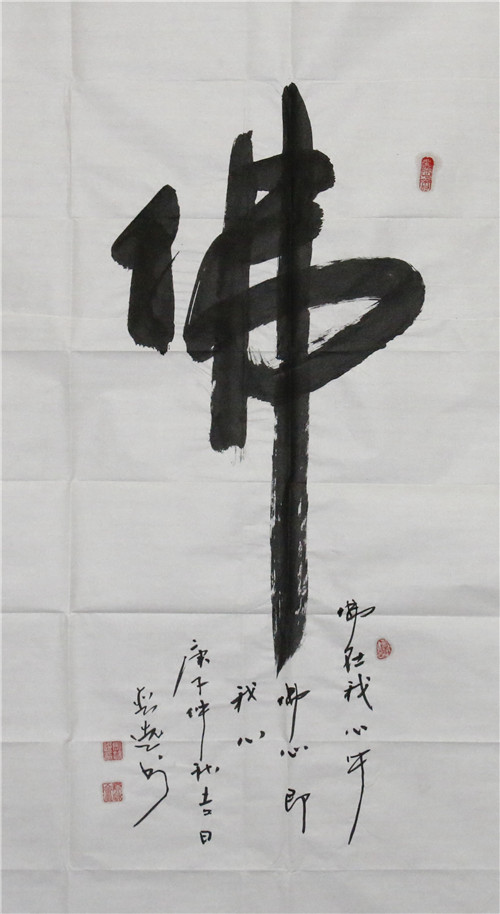 佛
佛在我心中
佛心即
我心
庚子仲秋吉日